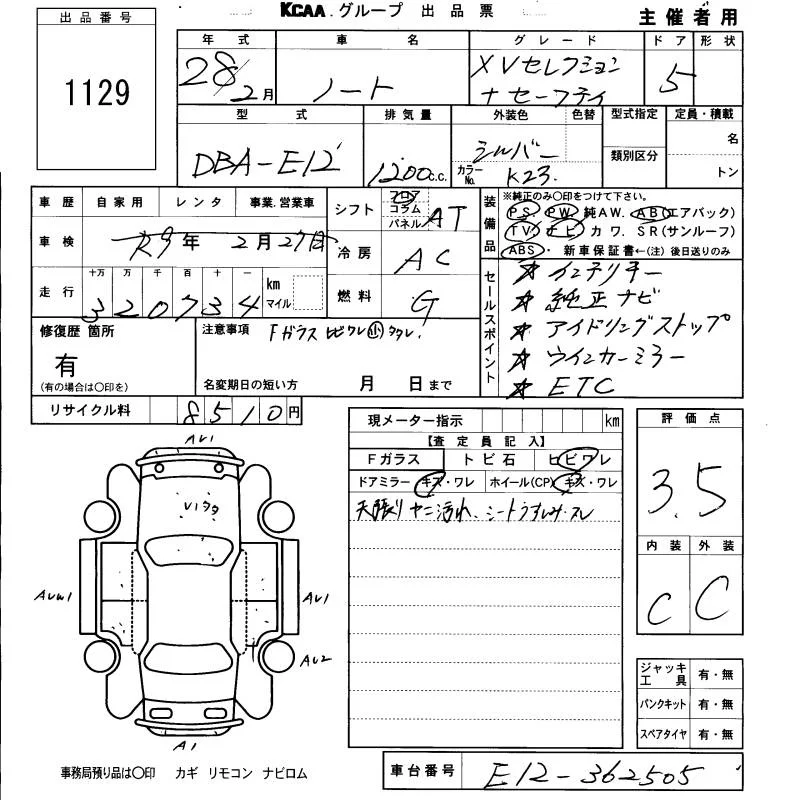 KCAA.グループ 出品票
主催者用
出品番号
1129
年式 車名 グレード ドア 形状
28/2月 ノート XVセレクション
ナセーフティ 5
型式 排気量 外装色 色替 型式指定 定員・積載
DBA-E12 1200c.c. シルバー 類別区分 名
カラーNo. K23 トン
車歴 自家用 レンタ 事業.営業車
シフト フロア コラム パネル AT
装備品 ※純正のみ〇印をつけて下さい。
PS. PW. 純AW. AB(エアバック)
TV ナビ カワ. SR(サンルーフ)
ABS・ 新車保証書←(注) 後日送りのみ
車検 年 2月27日
冷房 AC
走行 十万 万 千 百 十 一 km マイル
320734
燃料 G
セールスポイント
★ インテリキー
★ 純正ナビ
★ アイドリングストップ
★ ウインカーミラー
★ ETC
修復歴 箇所
有
(有の場合は〇印を)
注意事項 Fガラス ヒビワレ 小
名変期日の短い方 月 日まで
リサイクル料 8510円
現メーター指示 km
【査定員記入】
Fガラス トビ石 ヒビワレ
ドアミラー キズ・ワレ ホイール(CP) キズ・ワレ
天張り ヤニ汚れ、シートうすしみ・スレ
評価点
3.5
内装 外装
C C
AV1
AUW1
AV1
AU2
A1
ジャッキ工具 有・無
パンクキット 有・無
スペアタイヤ 有・無
事務局預り品は〇印 カギ リモコン ナビロム
車台番号 E12-362505